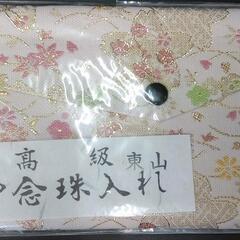 高級 東山
念珠入れ